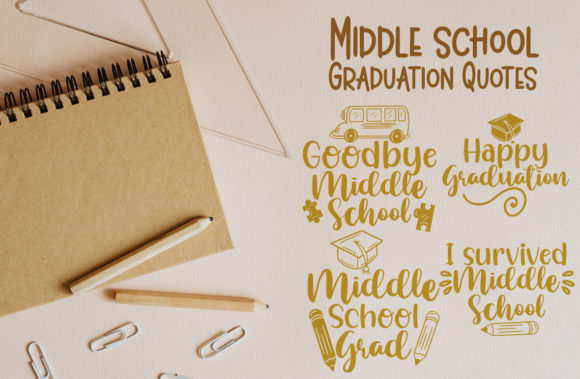 Middle school
Graduation Quotes
Goodbye
Middle
School
Happy
Graduation
Middle
school
Grad
I survived
Middle
School